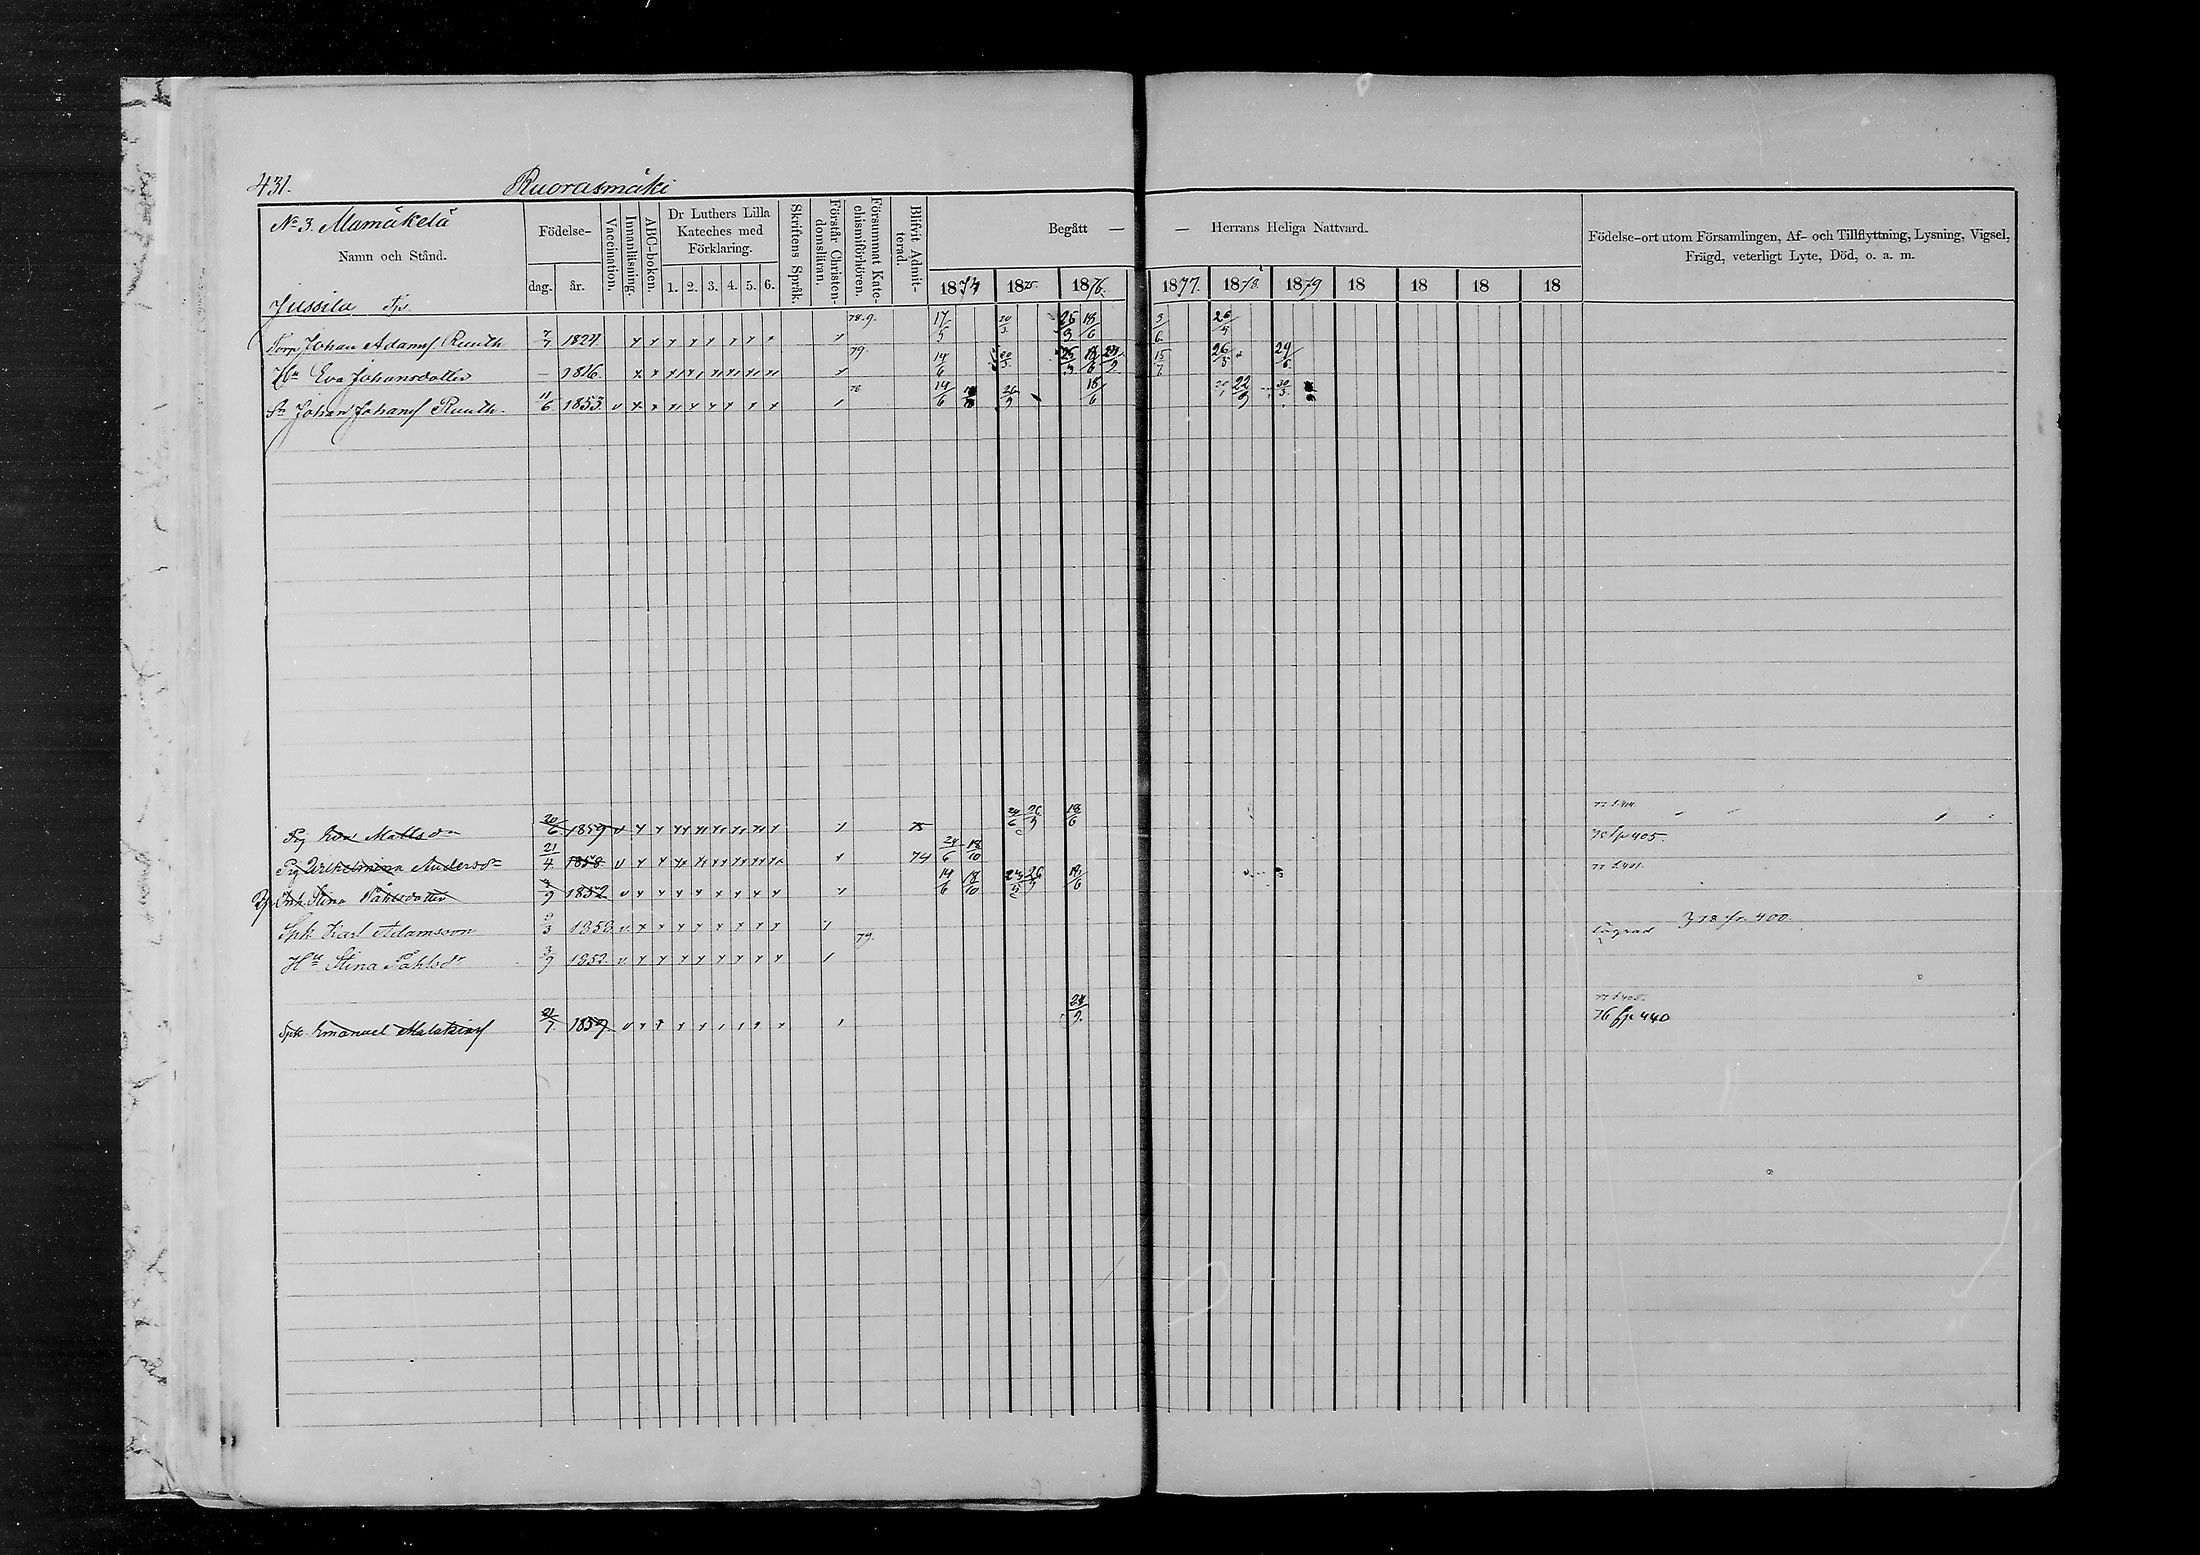 431.
Ruorasmäki
No 3. Mamäkelä
Namn och Stånd.
Födelse-
dag. år.
Vaccination.
Innanläsning.
ABC-boken.
Dr Luthers Lilla
Kateches med
Förklaring.
1. 2. 3. 4. 5. 6.
Skriftens Språk.
Förstår Christen-
domsläran.
Försummat Kate-
chismiförhören.
Blifvit Admit-
terad.
Begått — — Herrans Heliga Nattvard.
1874 1875 1876. 1877. 1878 1879 18 18 18 18
Födelse-ort utom Församlingen, Af- och Tillflyttning, Lysning, Vigsel,
Frägd, veterligt Lyte, Död, o. a. m.
Jussila Tp.
Torp Johan Adamsf Ruuth 7/7 1824 78.9. 17/5 20/3 26/3 18/6 3/6 26/5
Hu Eva Johansdotter — 1816 79. 14/6 20/3 18/6 24/9 15/7 26/5 29/6
Sn Johan Johansf Ruuth. 11/6 1853 v 78 14/6 26/9 18/6 22/9 30/3
77 t. 414.
Pig Eva Mattsdr 20/6 1859 v 75 24/6 26/9 18/6 76 fr 405.
Pig Wilhelmina Andersdr 21/4 1858 v 74 24/6 18/10 77 t. 401.
Inh. Stina Påhlsdotter 3/9 1852 v 14/6 18/10 26/9 18/6
Spk Karl Adamsson 1853 v 79. 378 fr. 400
Hu Stina Påhlsdr 3/9 1852 v
77 t 405.
Spk Emanuel Malakiasf 21/7 1859 v 24/9. 76 fr 440